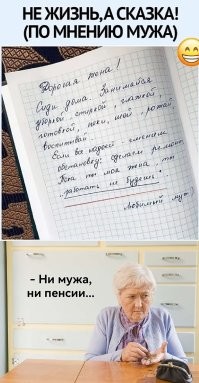 НЕ ЖИЗНЬ, А СКАЗКА!
(ПО МНЕНИЮ МУЖА)
Дорогая жена!
Сиди дома. Занимайся
уборкой, стиркой, глажкой,
готовкой, пеки, шей, рожай,
воспитывай.
Если вы надоест сменить
обстановку: сделаем ремонт
Пока ты моя жена, ты
работать не будешь!
Любимый муж
- Ни мужа,
ни пенсии...